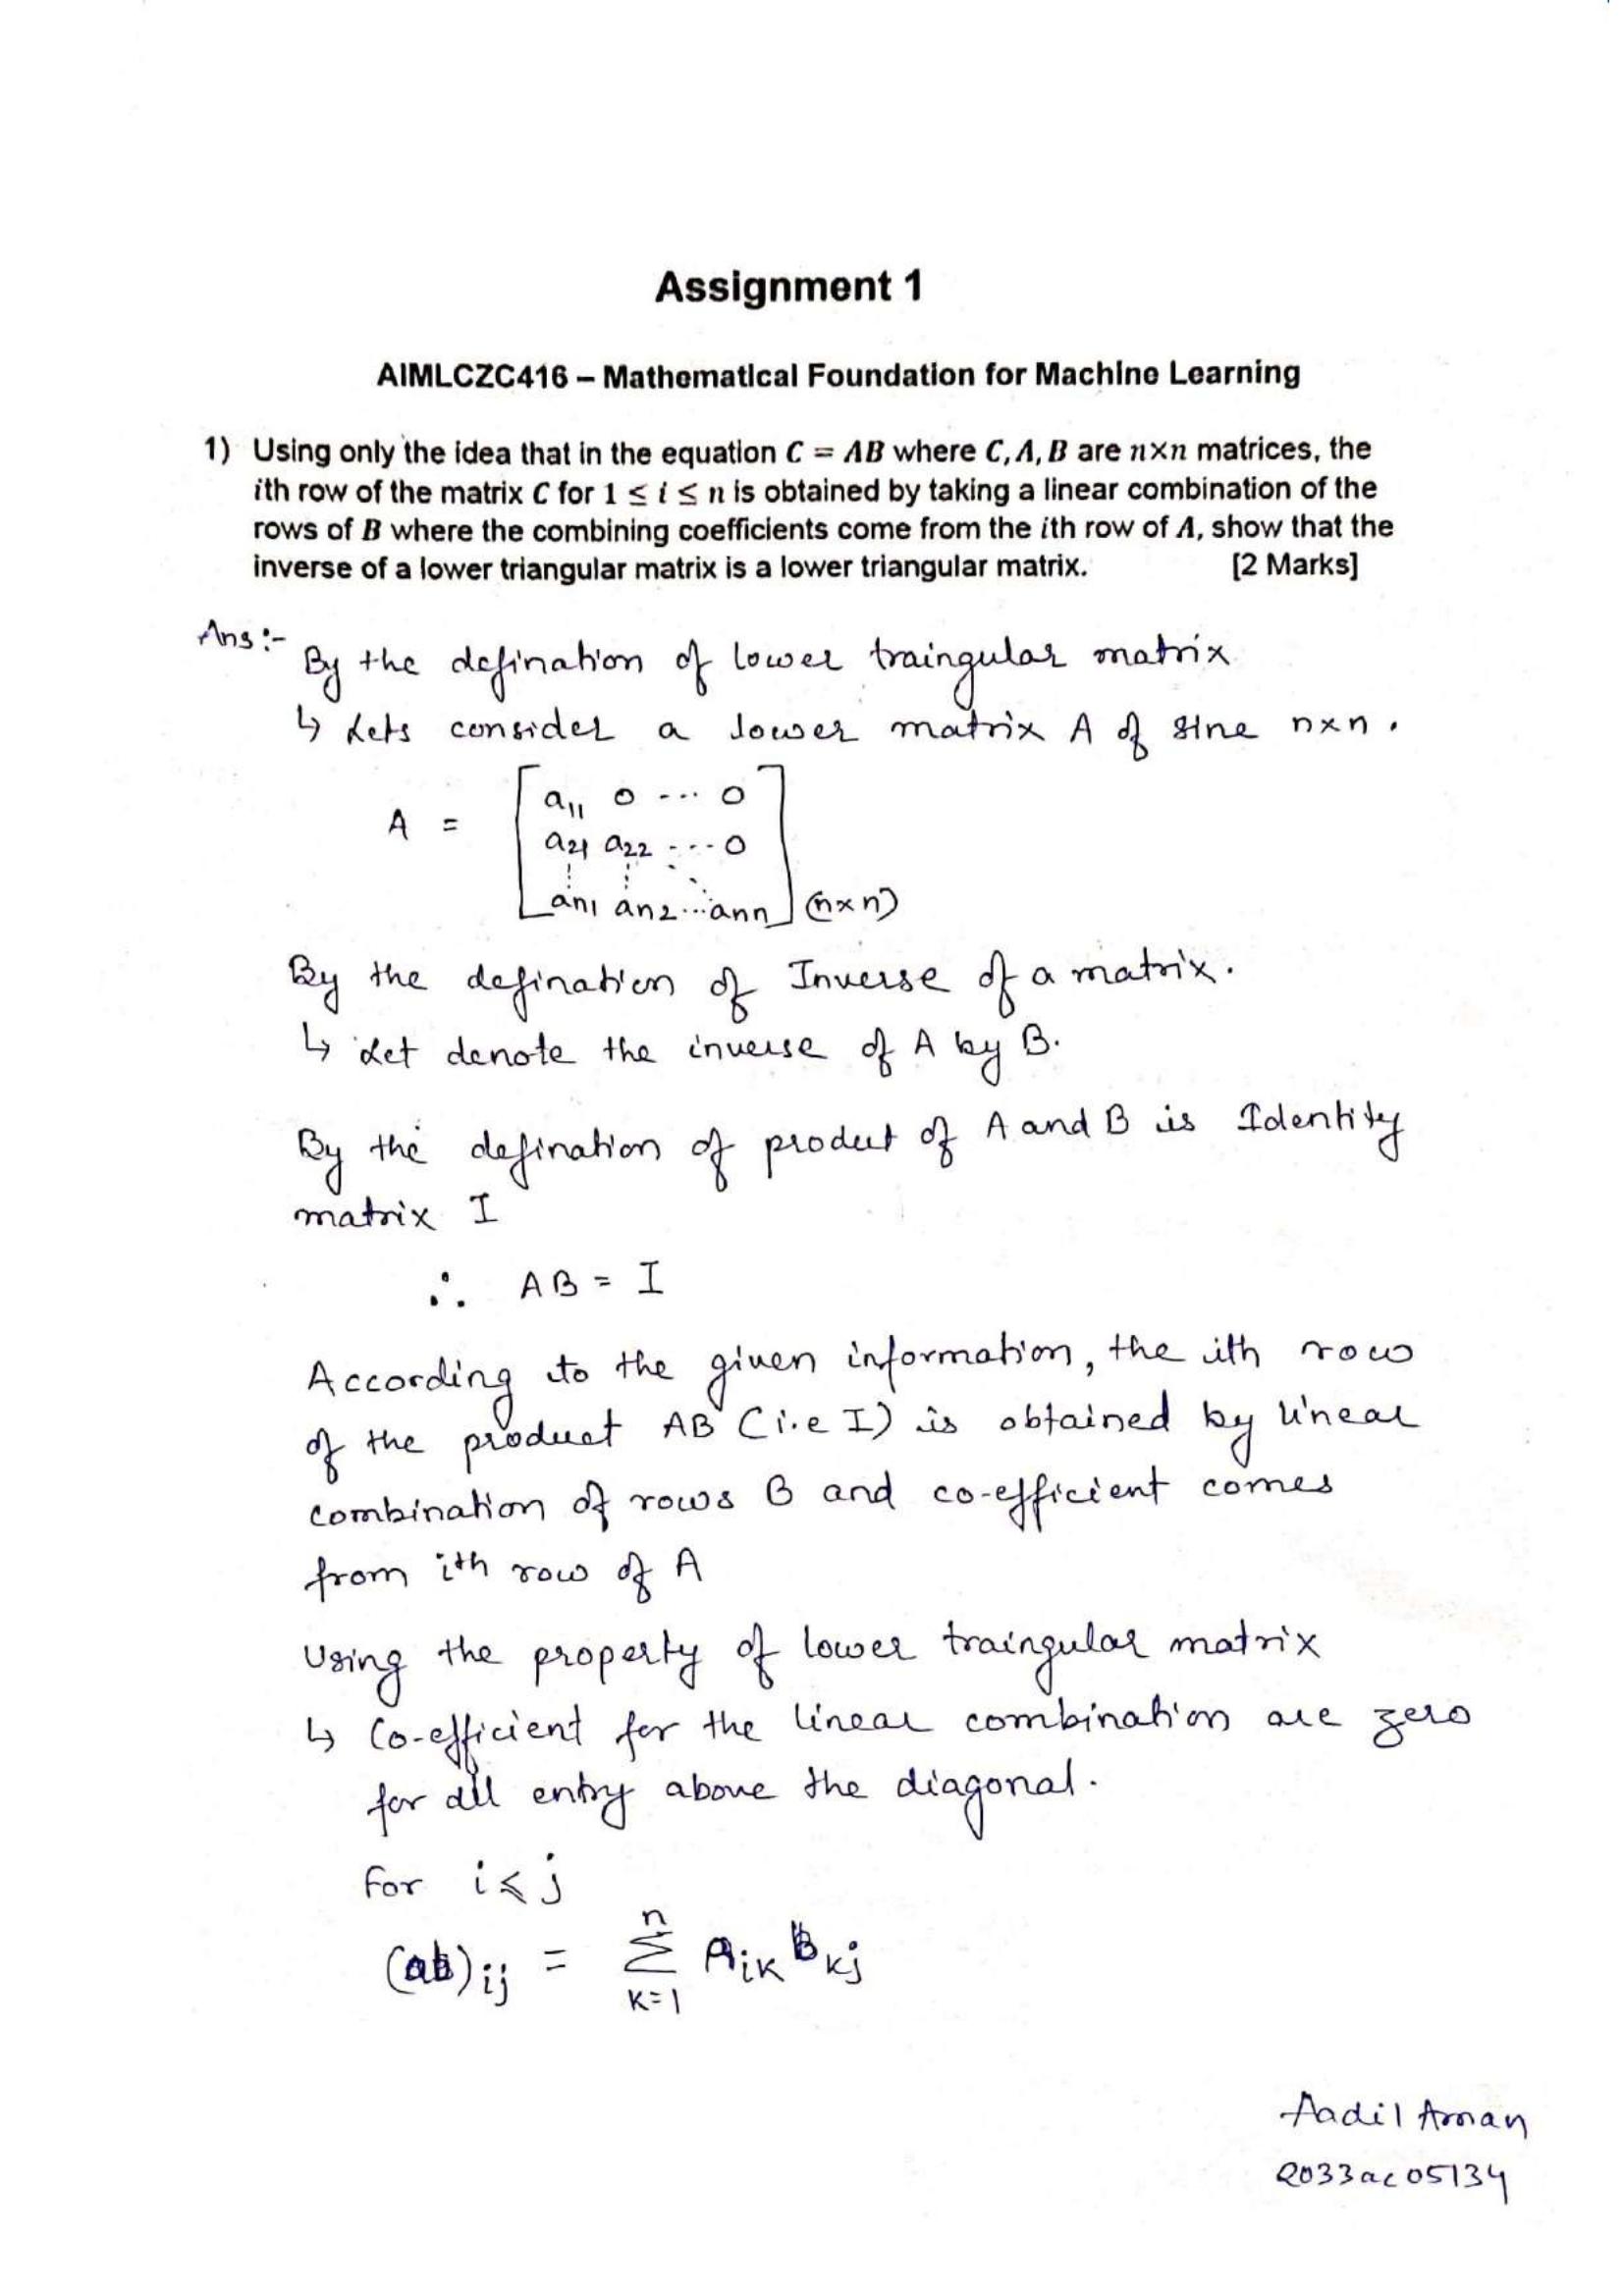 Assignment 1
AIMLCZC416 – Mathematical Foundation for Machine Learning
1) Using only the idea that in the equation C = AB where C, A, B are n×n matrices, the
ith row of the matrix C for 1 ≤ i ≤ n is obtained by taking a linear combination of the
rows of B where the combining coefficients come from the ith row of A, show that the
inverse of a lower triangular matrix is a lower triangular matrix. [2 Marks]
Ans :-
By the defination of lower traingular matrix
↳ Lets consider a lower matrix A of sine n×n.
A = [ a11 0 --- 0
a21 a22 ---- 0
⋮ ⋮ ⋱
an1 an2 ... ann ] (n×n)
By the defination of Inverse of a matrix.
↳ Let denote the inverse of A by B.
By the defination of produt of A and B is Identity
matrix I
∴ AB = I
According to the given information, the ith row
of the product AB (i.e I) is obtained by linear
combination of rows B and co-efficient comes
from ith row of A
Using the property of lower traingular matrix
↳ Co-efficient for the linear combination are zero
for all entry above the diagonal.
For i ≤ j
(ab)ij = n Σ k=1 Aik Bkj
Aadil Aman
2033ac05134